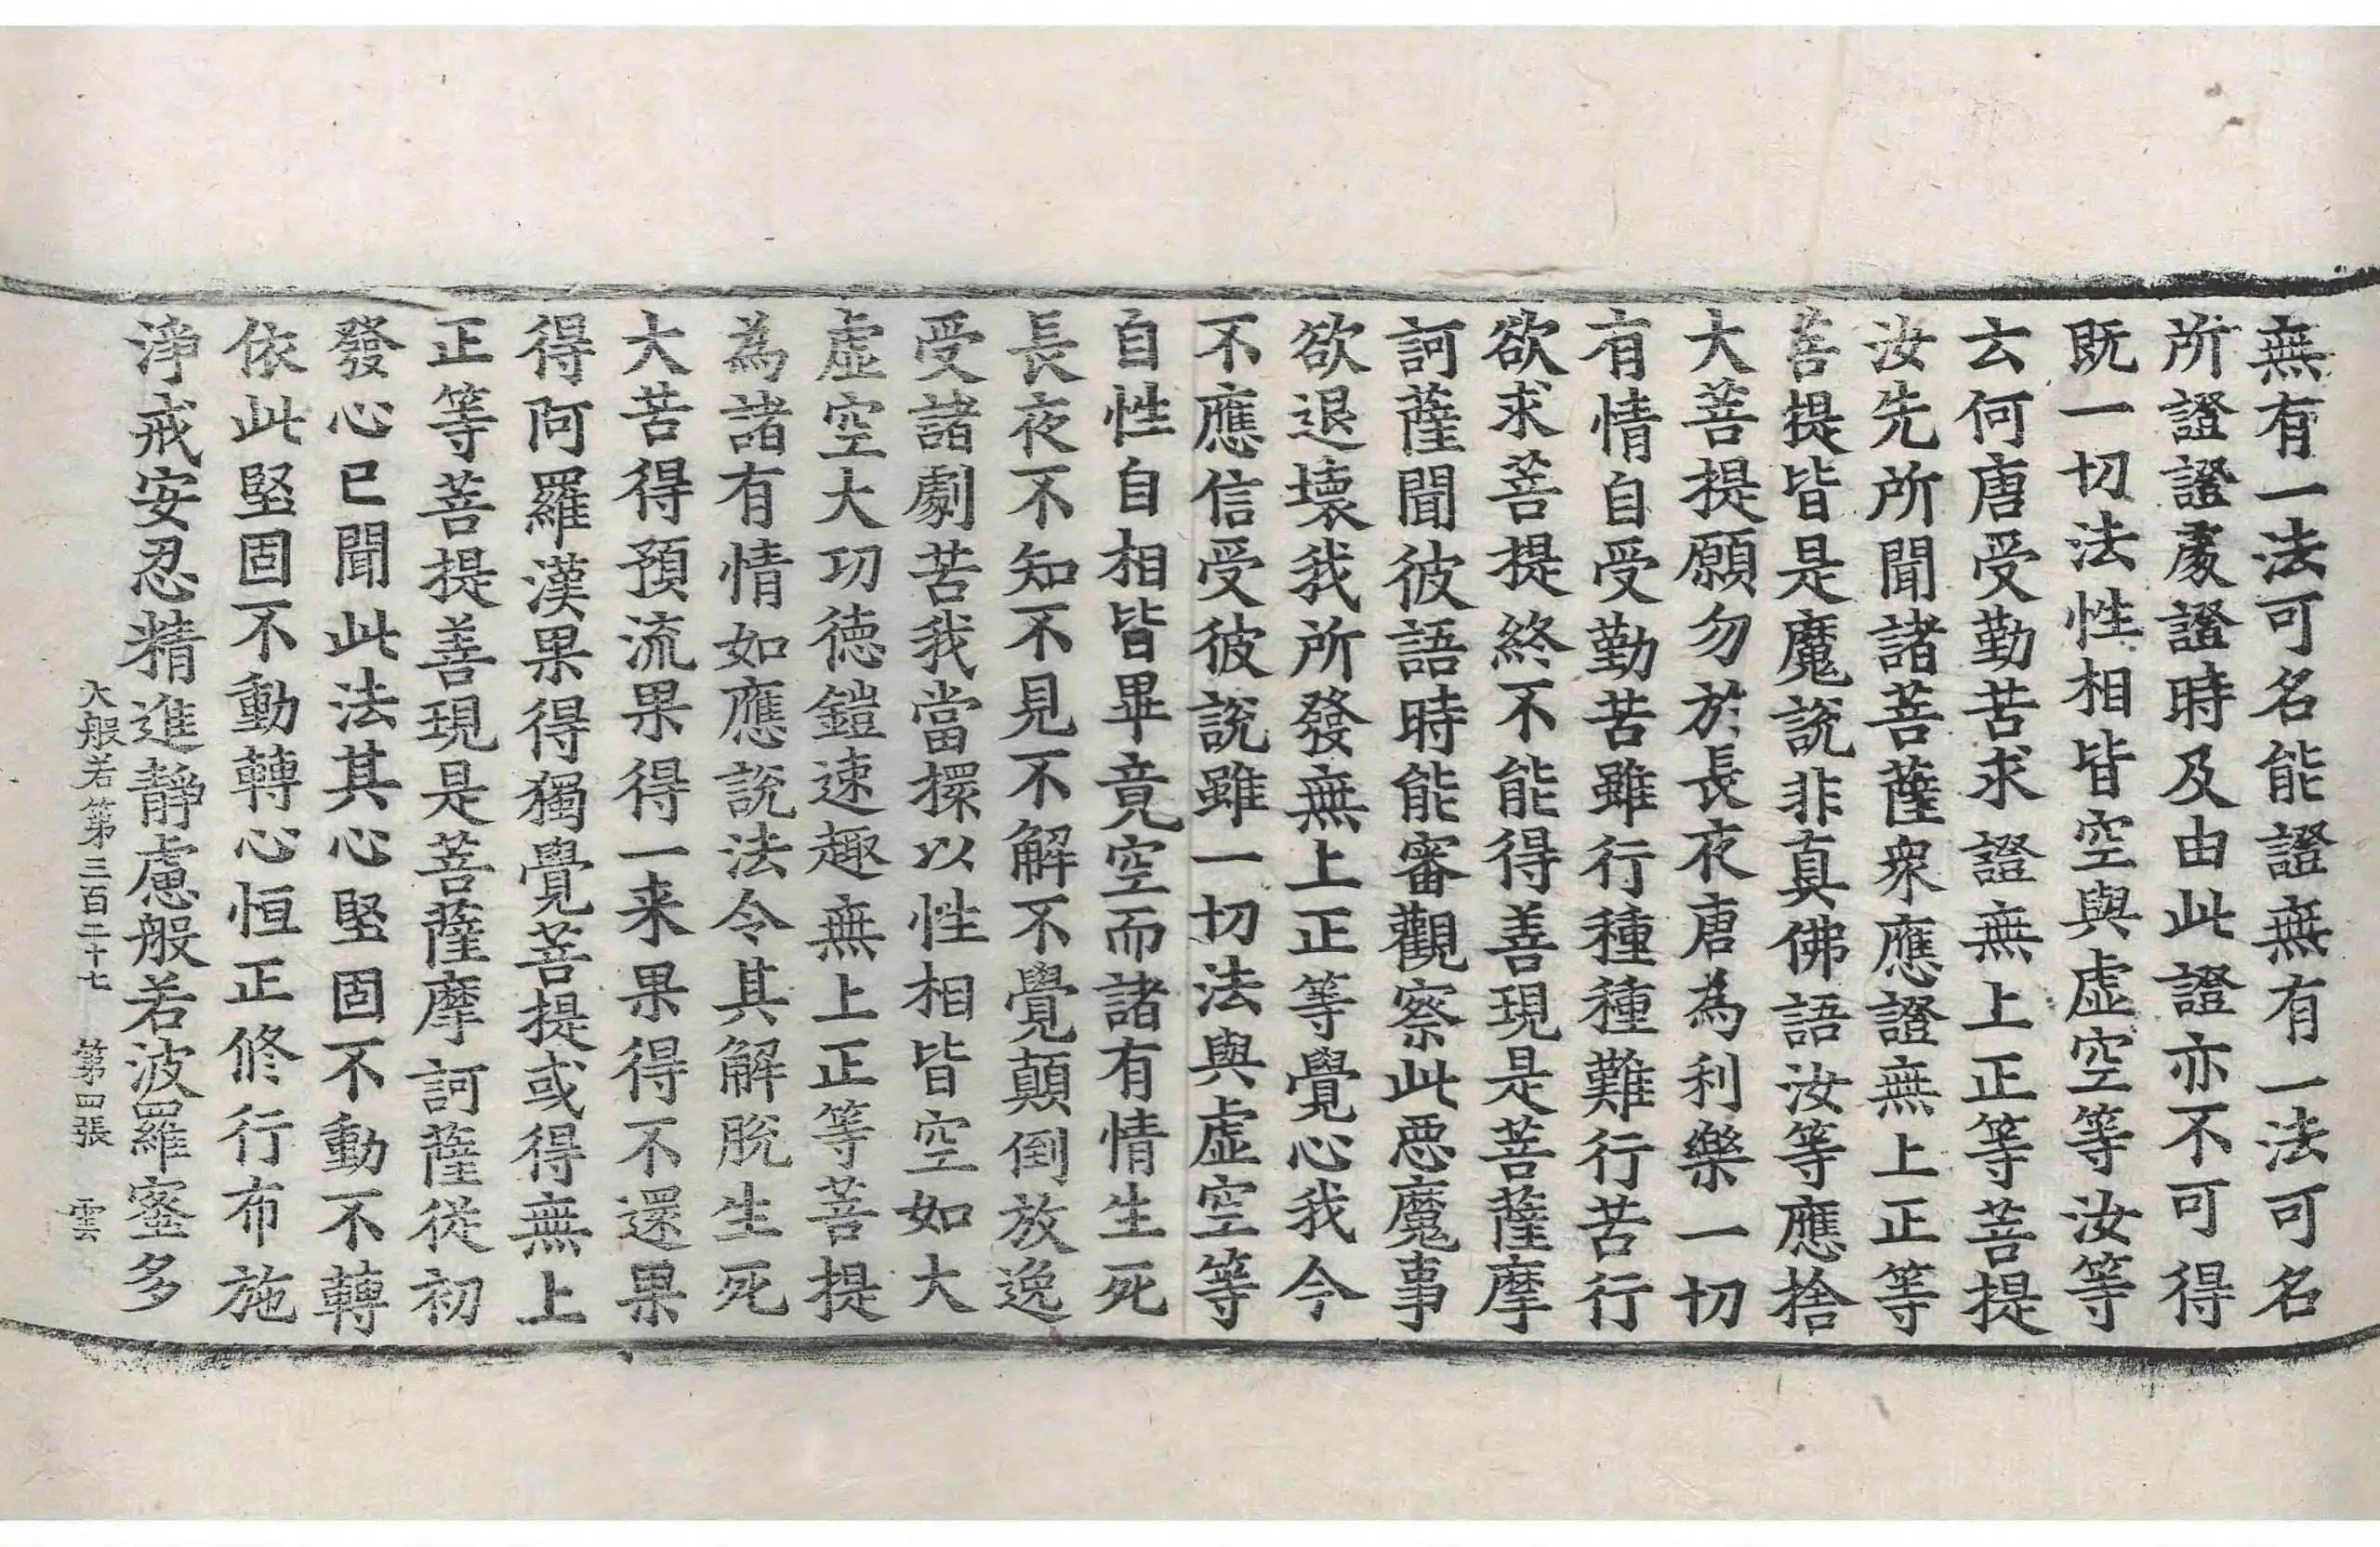 無有一法可名能證無有一法可名
所證證處證時及由此證亦不可得
既一切法性相皆空與虛空等汝等
云何唐受勤苦求證無上正等菩提
汝先所聞諸菩薩衆應證無上正等
菩提皆是魔說非真佛語汝等應捨
大菩提願勿於長夜唐為利樂一切
有情自受勤苦雖行種種難行苦行
欲求菩提終不能得善現是菩薩摩
訶薩聞彼語時能審觀察此惡魔事
欲退壞我所發無上正等覺心我今
不應信受彼說雖一切法與虛空等
自性自相皆畢竟空而諸有情生死
長夜不知不見不解不覺顛倒放逸
受諸劇苦我當擐以性相皆空如大
虛空大功德鎧速趣無上正等菩提
為諸有情如應說法令其解脫生死
大苦得預流果得一来果得不還果
得阿羅漢果得獨覺菩提或得無上
正等菩提善現是菩薩摩訶薩從初
發心已聞此法其心堅固不動不轉
依此堅固不動轉心恒正修行布施
淨戒安忍精進靜慮般若波羅蜜多
大般若第三百二十七 第四張 雲